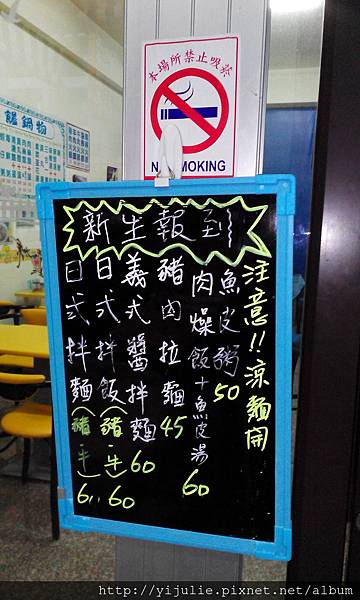 本場所禁止吸菸
NO SMOKING
鍋物
新生報到
注意!!涼麵開
魚皮粥50
肉燥飯+魚皮湯60
豬肉拉麵45
義式醬拌麵60
日式拌飯(豬、牛)60
日式拌麵(豬、牛)60
http://yijulie.pixnet.net/album